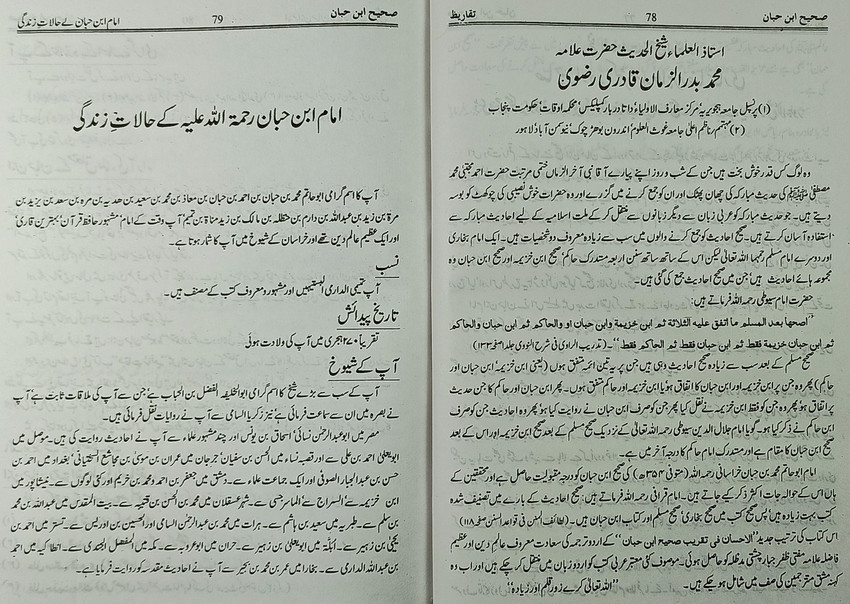 صحیح ابن حبان
78
تقاریظ
استاذ العلماء شیخ الحدیث حضرت علامہ
محمد بدر الزمان قادری رضوی
(۱) پرنسپل جامعہ ہجویریہ مرکز معارف الاولیاء داتا دربار کمپلیکس محکمہ اوقات حکومت پنجاب
(۲) مہتمم ناظم اعلیٰ جامعہ غوث العلوم اندرون بوھڑ چوک نیو سمن آباد لاہور
وہ لوگ کس قدر خوش بخت ہیں جن کے شب و روز اپنے پیارے آقا نبی آخر الزماں ختمی مرتبت حضرت احمد مجتبیٰ محمد
مصطفی ﷺ کی حدیث مبارکہ کی چھان پھٹک اور ان کو جمع کرنے میں گزرے اور وہ حضرات خوش نصیبی کی چوکھٹ کو بوسہ
دیتے ہیں۔ جو حدیث مبارکہ کو عربی زبان سے دیگر زبانوں سے منتقل کر کے ملت اسلامیہ کے لیے احادیث مبارکہ سے
استفادہ آسان کرتے ہیں۔ صحیح احادیث کو جمع کرنے والوں میں سب سے زیادہ معروف دو شخصیات ہیں۔ ایک امام بخاری
اور دوسرے امام مسلم رحمہما اللہ تعالیٰ لیکن اس کے ساتھ ساتھ سنن اربعہ مستدرک حاکم، صحیح ابن خزیمہ اور صحیح ابن حبان وہ
مجموعہ ہائے احادیث ہیں جن میں صحیح احادیث جمع کی گئی ہیں۔
حضرت امام سیوطی رحمہ اللہ فرماتے ہیں:
"اصحها بعد المسلم ما اتفق عليه الثلاثة ثم ابن خزيمة وابن حبان او والحاكم ثم ابن حبان والحاكم
ثم ابن حبان خزيمة فقط ثم ابن حبان فقط ثم الحاكم فقط"۔ (تدریب الراوی فی شرح النووی جلد ا صفحہ ۱۳۳)
صحیح مسلم کے بعد سب سے زیادہ صحیح احادیث وہی ہیں جن پر یہ تین ائمہ متفق ہوں (یعنی ابن خزیمہ اور ابن حبان اور
حاکم) پھر وہ جن پر ابن خزیمہ اور ابن حبان کا اتفاق ہو یا ابن خزیمہ اور حاکم متفق ہوں۔ پھر ابن حبان اور حاکم کا جن حدیث
پر اتفاق ہو پھر وہ جن کو فقط ابن خزیمہ نے نقل کیا ہو پھر جن کو صرف ابن حبان نے روایت کیا ہو پھر وہ حدیث جن کو صرف
ابن حاکم نے ذکر کیا ہو۔ گویا امام جلال الدین سیوطی رحمہ اللہ تعالیٰ کے نزدیک صحیح مسلم کے بعد صحیح ابن خزیمہ اور اس کے بعد
صحیح ابن حبان کا مقام ہے اور مستدرک امام حاکم کا درجہ آخر میں ہے۔
امام ابو حاتم محمد بن حبان خراسانی رحمہ اللہ (متوفی ۳۵۴ھ) کی صحیح ابن حبان کو درجہ مقبولیت حاصل ہے اور محققین کے
ہاں اس کے حوالہ جات اکثر ذکر کیے جاتے ہیں۔ امام رحمہ اللہ فرماتے ہیں: صحیح احادیث کے بارے میں تصنیف شدہ
کتب بہت زیادہ ہیں پس صحیح کتب میں صحیح بخاری، صحیح مسلم اور کتاب ابن حبان ہیں۔ (لطائف السنن فی قواعد السنن صفحہ ۱۱۸)
اس کتاب کی ترتیب جدید "الاحسان فی تقریب صحیح ابن حبان" کے اردو ترجمہ کی سعادت معروف عالم دین اور عظیم
فاضل علامہ مفتی ظفر جبار چشتی مدظلہ کو حاصل ہوئی۔ موصوف کئی معتبر عربی کتب کو اردو زبان میں منتقل کر چکے ہیں اور اب وہ
کہنہ مشق مترجمین کی صف میں شامل ہو چکے ہیں۔ "اللہ تعالیٰ کرے زور قلم اور زیادہ"
صحیح ابن حبان
79
امام ابن حبان کے حالات زندگی
امام ابن حبان رحمۃ اللہ علیہ کے حالاتِ زندگی
آپ کا اسم گرامی ابو حاتم محمد بن حبان بن احمد بن حبان بن معاذ بن محمد بن سعید بن ھدیہ بن مرہ بن سعد بن یزید بن
مرۃ بن زید بن عبداللہ بن دارم بن حنظلہ بن مالک بن زید مناۃ بن تمیم آپ وقت کے امام مشہور حافظ قرآن بہترین قاری
اور ایک عظیم عالم دین تھے اور خراسان کے شیوخ میں آپ کا شمار ہوتا ہے۔
نسب
آپ تمیمی الداری اور مشہور و معروف کتب کے مصنف ہیں۔
تاریخ پیدائش
تقریباً ۲۷۰ ہجری میں آپ کی ولادت ہوئی
آپ کے شیوخ
آپ کے سب سے بڑے شیخ کا اسم گرامی ابوالخلیفہ الفضل بن الحباب ہے جن سے آپ کی ملاقات ثابت ہے آپ
نے بصرہ میں ان سے سماعت فرمائی ہے نیز زکریا السامی سے آپ نے روایات نقل فرمائی ہیں۔
مصر میں ابو عبدالرحمٰن نسائی، اسحاق بن یونس اور چند مشہور علماء سے آپ نے احادیث روایت کی ہیں۔ موصل میں
ابو یعلیٰ احمد بن علی سے اور قصبہ نساء میں الحسن بن سفیان، جرجان میں عمران بن موسیٰ بن مجاشع السختیانی، بغداد میں احمد بن
حسن بن عبدالجبار الصوفی اور ایک جماعت علماء سے۔ دمشق میں جعفر بن احمد اور محمد بن خریم اور کئی لوگوں سے۔ نیشاپور میں
ابن خزیمہ سے السراج سے الماسرجسی سے۔ شہر عسقلان میں محمد بن الحسن بن قتیبہ سے۔ بیت المقدس میں عبداللہ بن محمد
بن سلم سے۔ طبریہ میں سعید بن ہاشم سے۔ ہرات میں محمد بن عبدالرحمٰن السامی اور الحسین بن ادریس سے۔ تستر میں احمد بن
یحییٰ بن زہیر سے۔ ابلہ میں ابو یعلیٰ بن زہیر سے۔ حران میں ابو عروبہ سے۔ مکہ میں المفضل الجندی سے۔ انطاکیہ میں احمد
بن عبداللہ الداری سے۔ بخارا میں عمر بن محمد بن بجیر سے آپ نے احادیث مقدسہ کو روایت فرمایا ہے۔